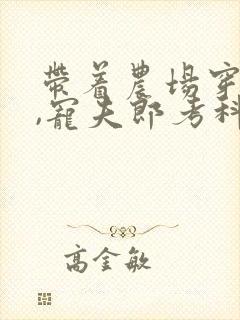 带着農場穿
,寵夫郎考科
高金敏